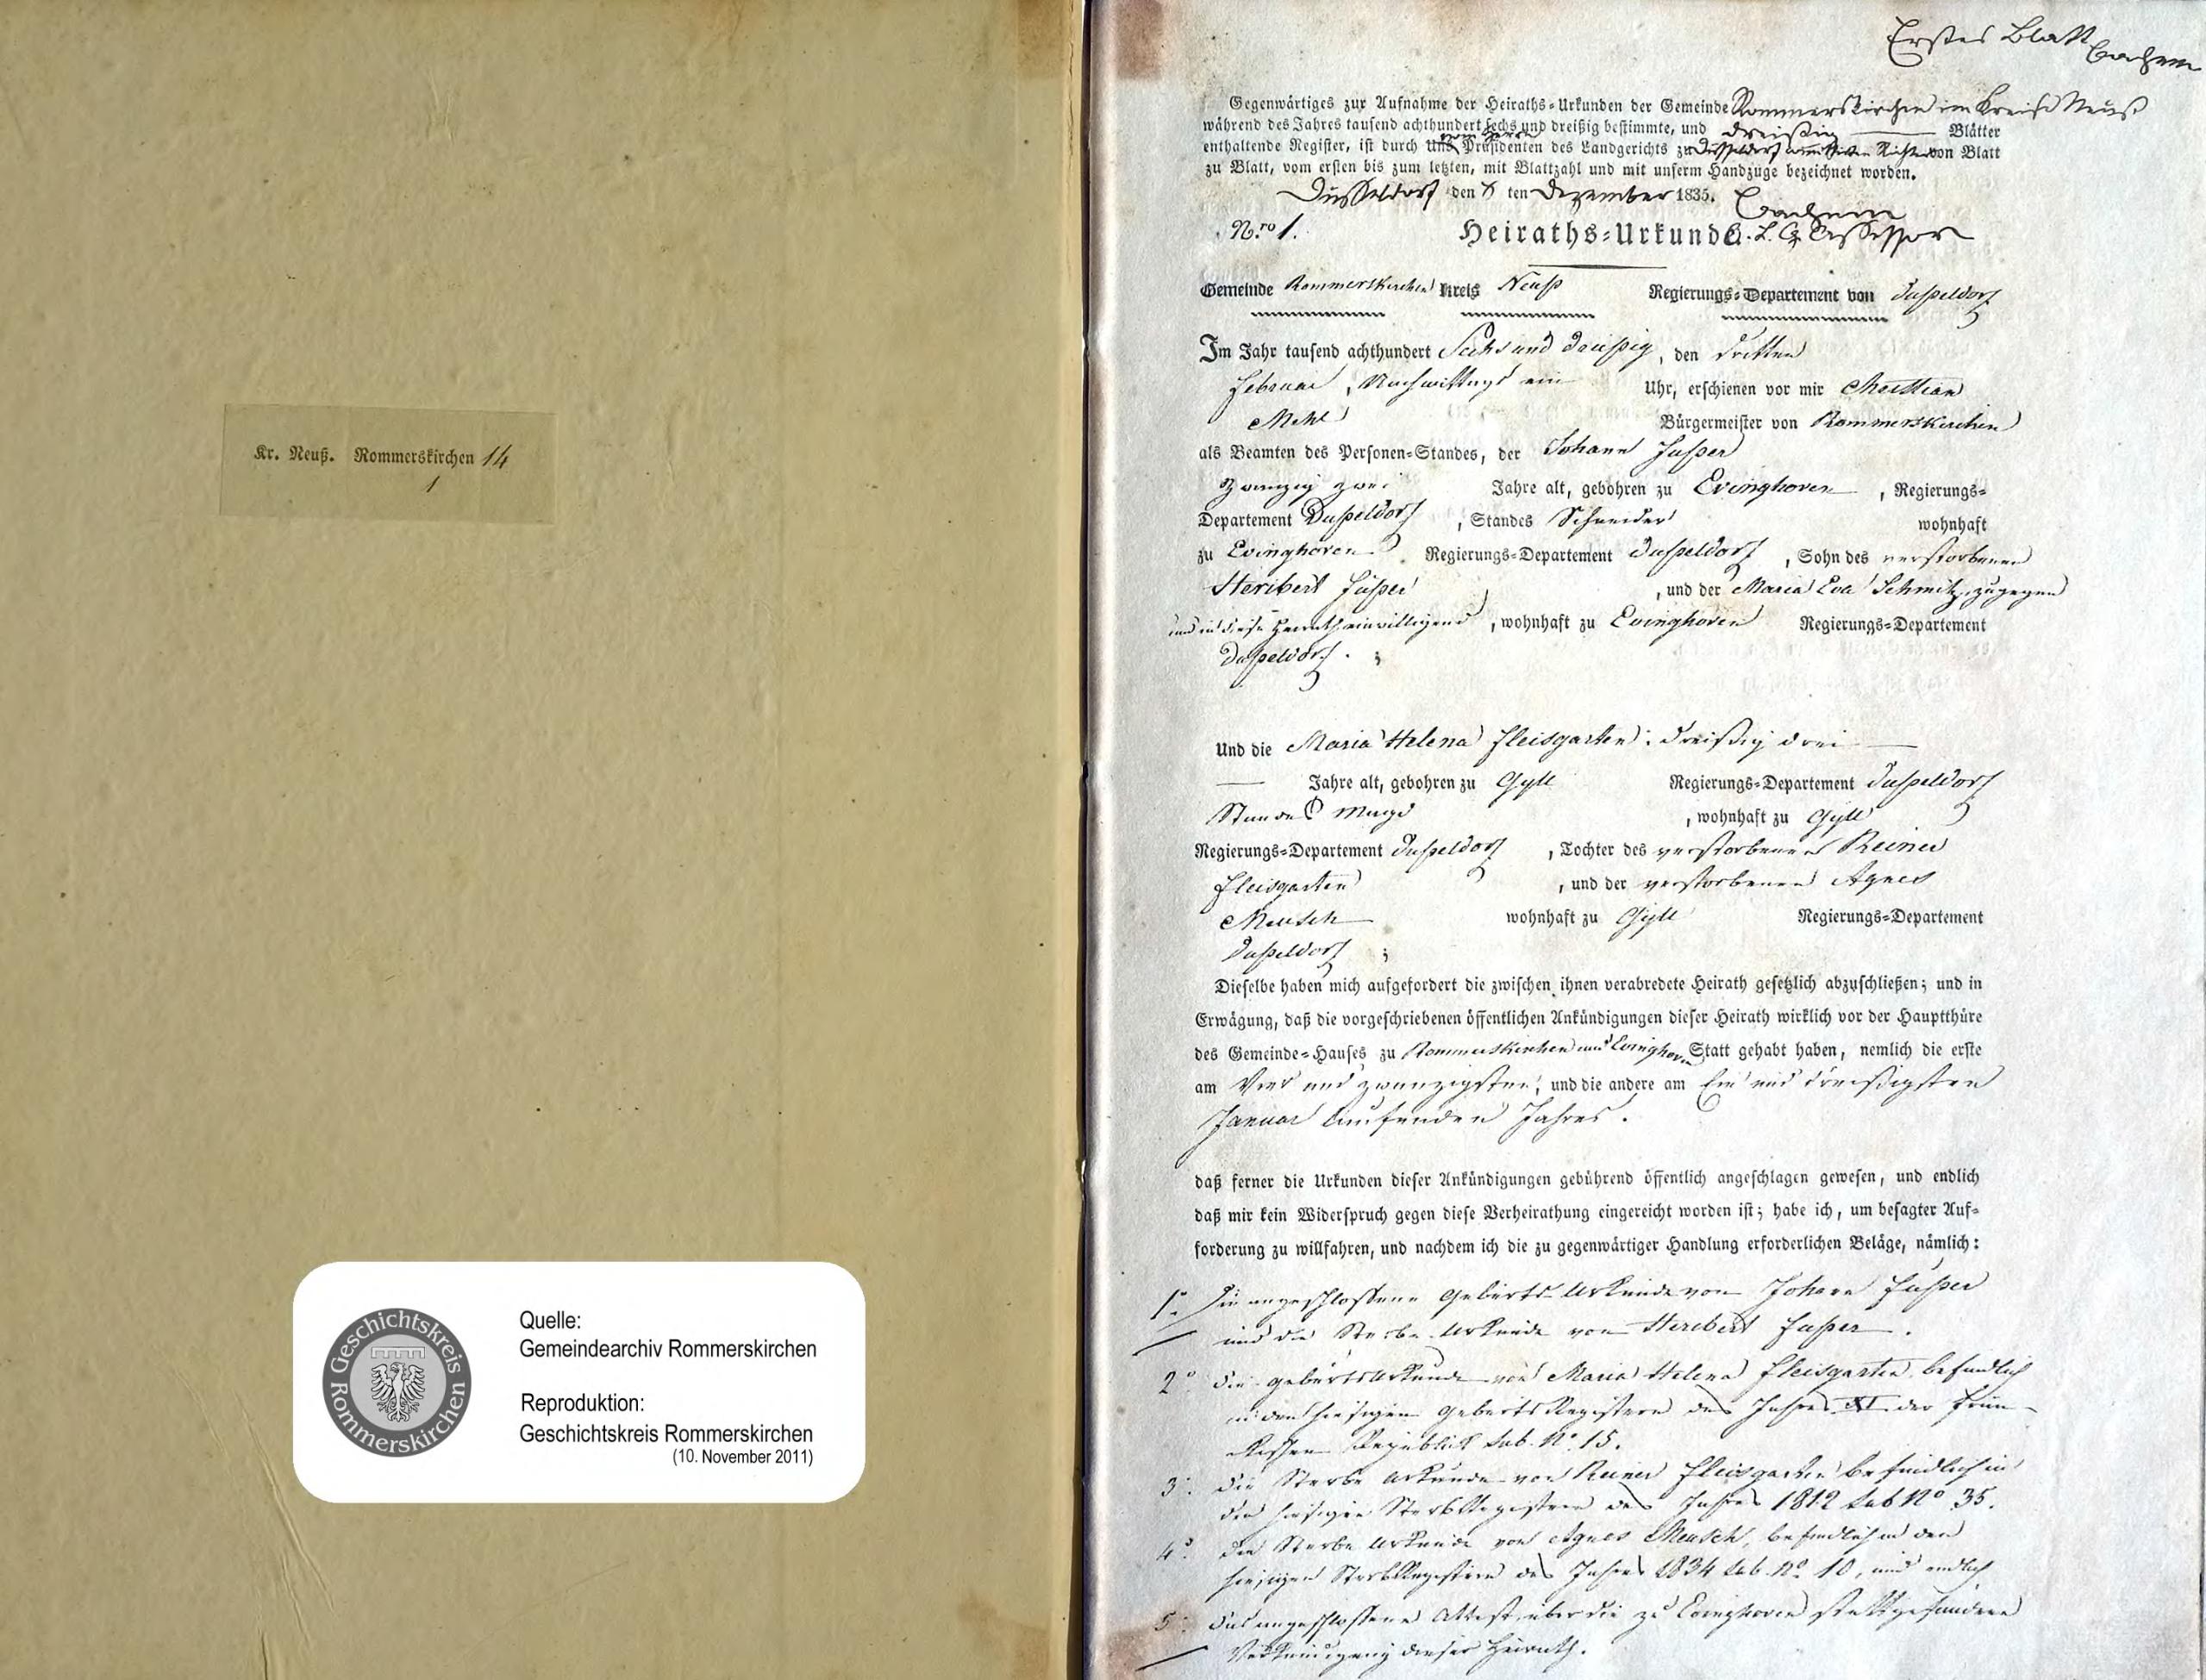 Kr. Neuß. Rommerskirchen 14
1
Geschichtskreis Rommerskirchen
Quelle:
Gemeindearchiv Rommerskirchen
Reproduktion:
Geschichtskreis Rommerskirchen
(10. November 2011)
Erstes Blatt
Gegenwärtiges zur Aufnahme der Heiraths-Urkunden der Gemeinde Rommerskirchen im Kreise Neuß
während des Jahres tausend achthundert sechs und dreißig bestimmte, und dreißig Blätter
enthaltende Register, ist durch Uns Präsidenten des Landgerichts zu Düsseldorf von Blatt
zu Blatt, vom ersten bis zum letzten, mit Blattzahl und mit unserm Handzuge bezeichnet worden.
Düsseldorf den 8 ten Dezember 1835.
Nro 1. Heiraths-Urkunde. L. G. Assessor
Gemeinde Rommerskirchen Kreis Neuß Regierungs-Departement von Dußeldorf
Im Jahr tausend achthundert Sechs und dreißig, den dritten
Februar, Nachmittags ein Uhr, erschienen vor mir Christian
Mehl Bürgermeister von Rommerskirchen
als Beamten des Personen-Standes, der Johann Fußer
zwanzig zwei Jahre alt, gebohren zu Evinghoven, Regierungs-
Departement Dußeldorf, Standes Schneider wohnhaft
zu Evinghoven Regierungs-Departement Dußeldorf, Sohn des verstorbenen
Heribert Fußer, und der Maria Eva Schmitz, zugegen
und in diese Heirath einwilligend, wohnhaft zu Evinghoven Regierungs-Departement
Dußeldorf. ;
Und die Maria Helena Fleisgarten, dreißig drei
Jahre alt, gebohren zu Gyll Regierungs-Departement Dußeldorf
Standes Magd, wohnhaft zu Gyll
Regierungs-Departement Dußeldorf, Tochter des verstorbenen Reiner
Fleisgarten, und der verstorbenen Agnes
Meusch wohnhaft zu Gyll Regierungs-Departement
Dußeldorf ;
Dieselbe haben mich aufgefordert die zwischen ihnen verabredete Heirath gesetzlich abzuschließen; und in
Erwägung, daß die vorgeschriebenen öffentlichen Ankündigungen dieser Heirath wirklich vor der Hauptthüre
des Gemeinde-Hauses zu Rommerskirchen und Evinghoven Statt gehabt haben, nemlich die erste
am Vier und zwanzigsten, und die andere am Ein und dreißigsten
Januar laufenden Jahres.
daß ferner die Urkunden dieser Ankündigungen gebührend öffentlich angeschlagen gewesen, und endlich
daß mir kein Widerspruch gegen diese Verheirathung eingereicht worden ist; habe ich, um besagter Auf-
forderung zu willfahren, und nachdem ich die zu gegenwärtiger Handlung erforderlichen Beläge, nämlich:
1° Die angeschlossene Geburts-Urkunde von Johann Fußer
und die Sterbe-Urkunde von Heribert Fußer.
2° die Geburtsurkunde von Maria Helena Fleisgarten, befindlich
in den hiesigen Geburts Registern des Jahres XI der frän-
kischen Republick sub. N° 15.
3° die Sterbe Urkunde von Reiner Fleisgarten befindlich in
den hiesigen Sterbregistern des Jahres 1812 sub N° 35.
4° die Sterbe Urkunde von Agnes Meusch, befindlich in den
hiesigen Sterbregistern des Jahres 1834 sub. N° 10, und endlich
5° das angeschlossene Attest über die zu Evinghoven stattgefundene
Verkündigung dieser Heirath.